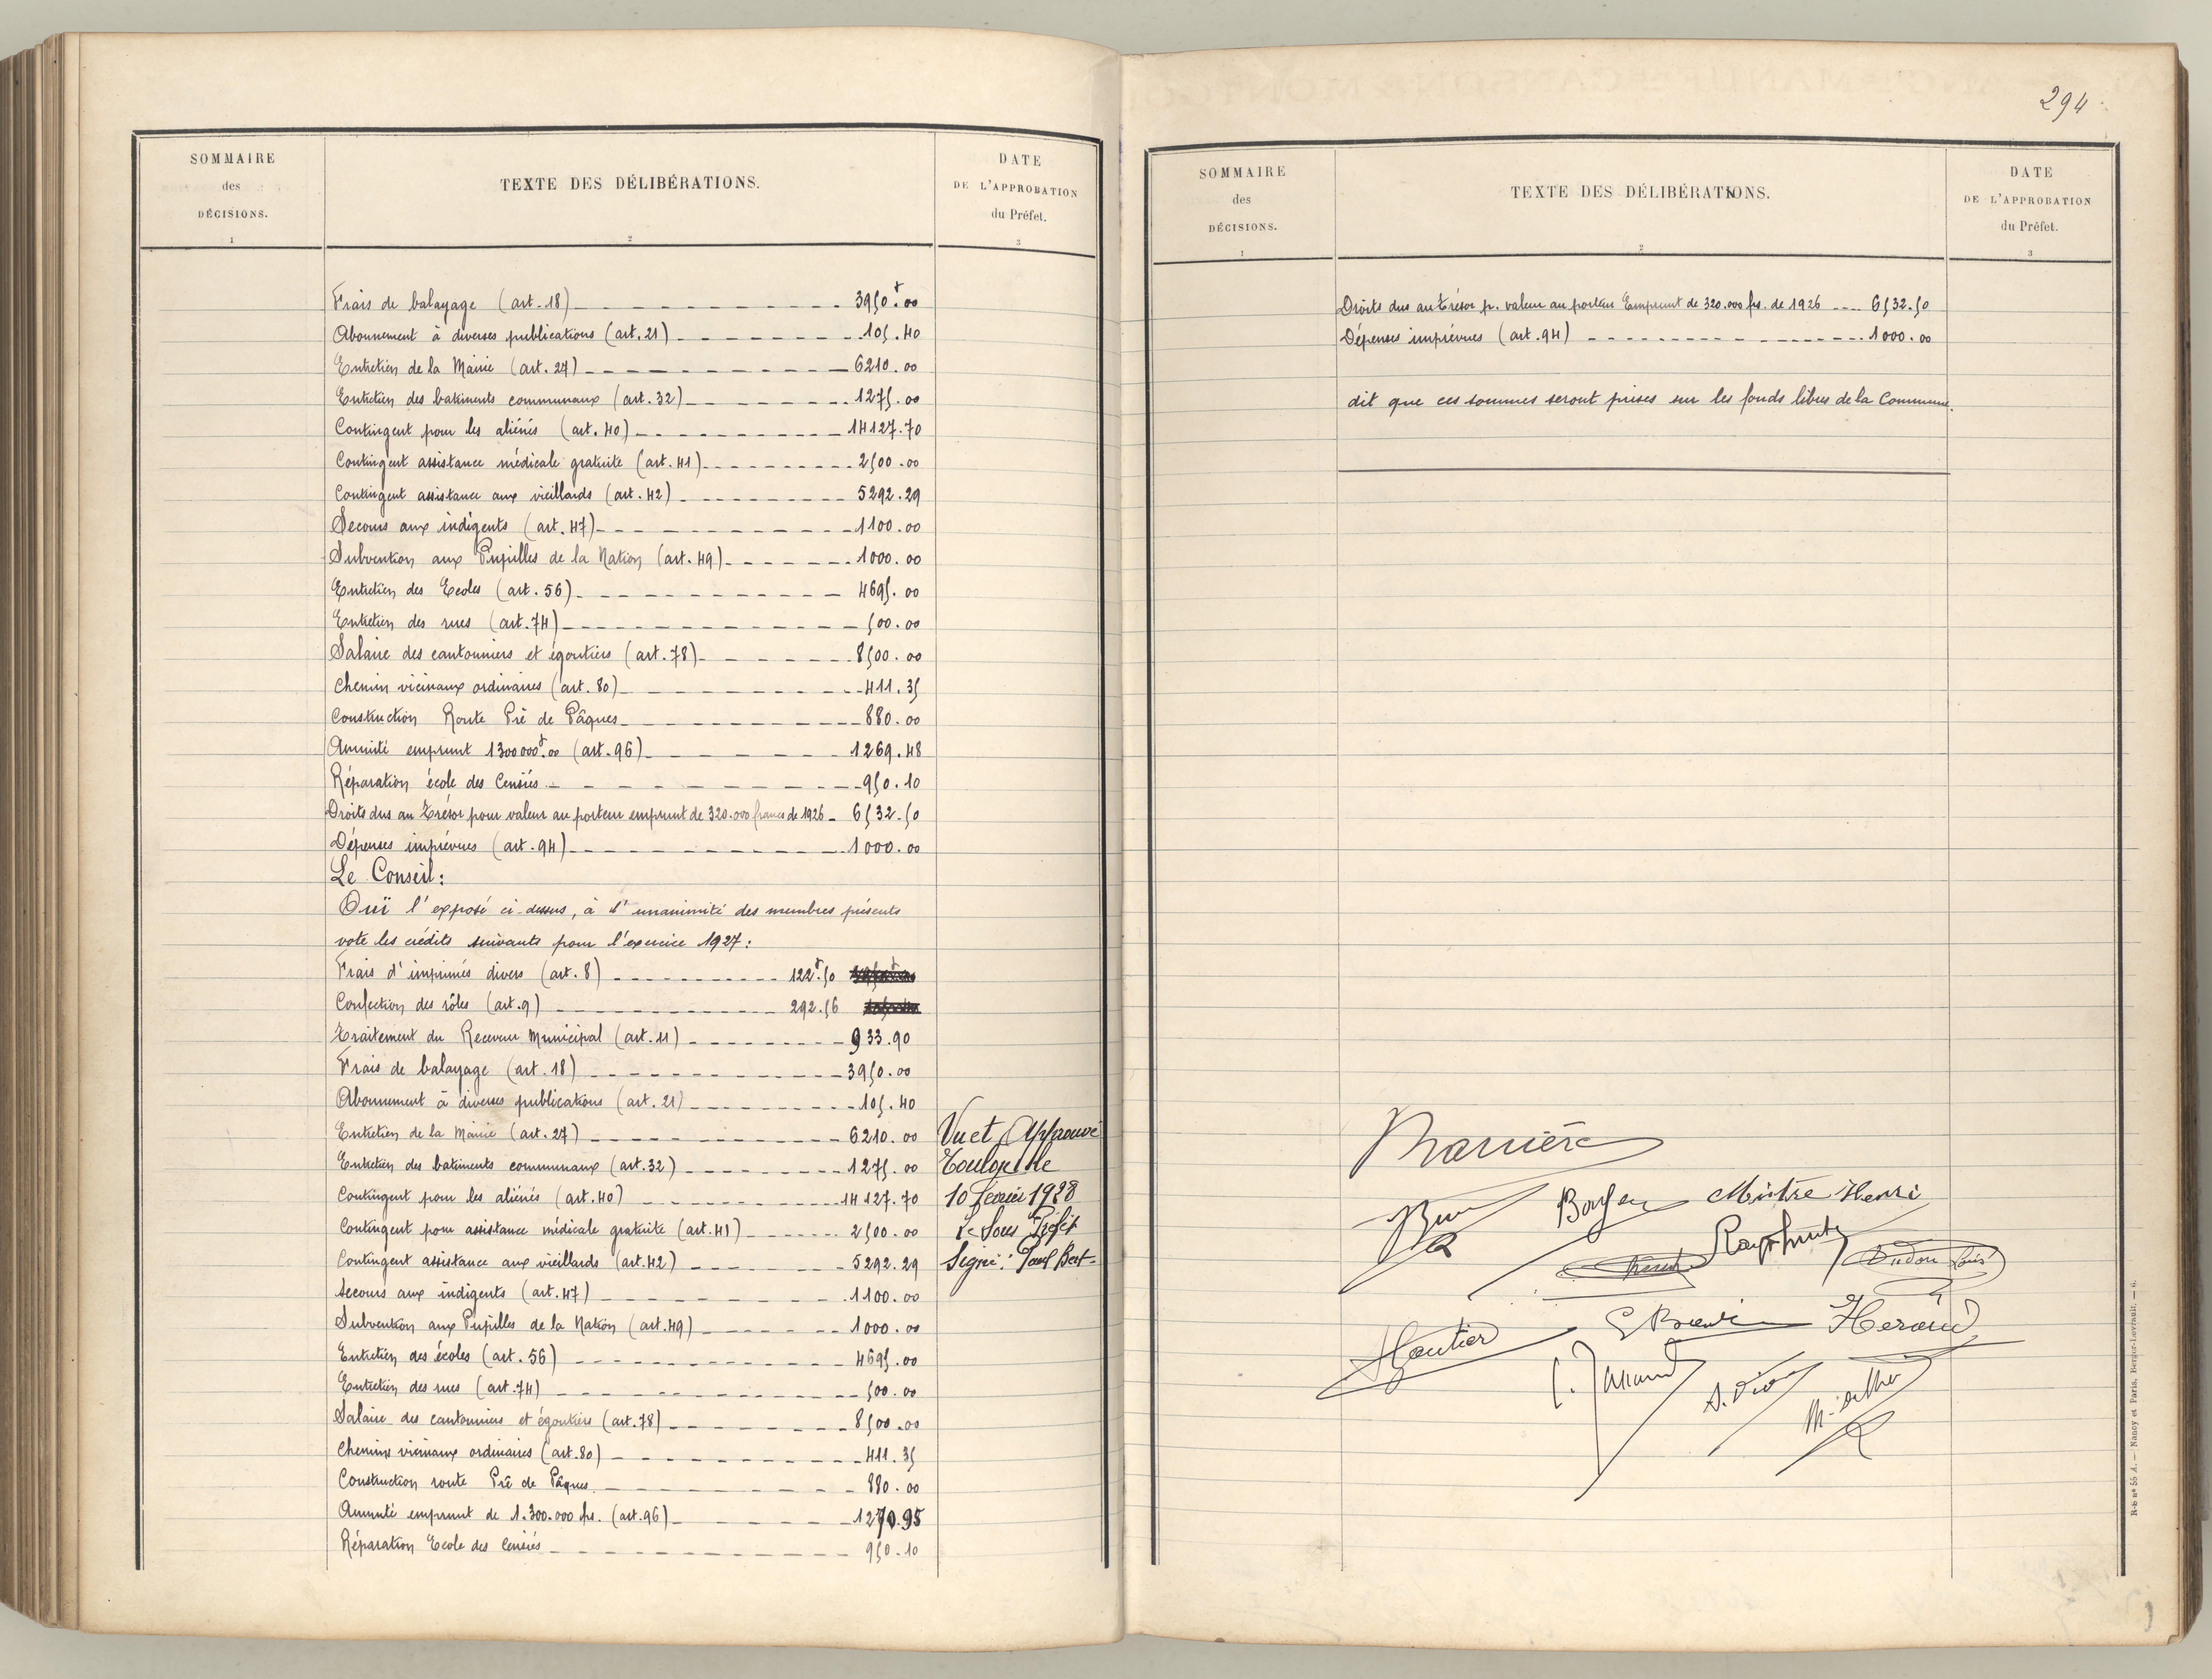 SOMMAIRE
des
DÉCISIONS.
1
TEXTE DES DÉLIBÉRATIONS.
2
DATE
DE L'APPROBATION
du Préfet.
3
Frais de balayage (art. 18) 3950f.00
Abonnement à diverses publications (art. 21) 105.40
Entretien de la Mairie (art. 27) 6210.00
Entretien des batiments communaux (art. 32) 1275.00
Contingent pour les aliénés (art. 40) 14127.70
Contingent assistance médicale gratuite (art. 41) 2500.00
Contingent assistance aux vieillards (art. 42) 5292.29
Secours aux indigents (art. 47) 1100.00
Subvention aux Pupilles de la Nation (art. 49) 1000.00
Entretien des Ecoles (art. 56) 4695.00
Entretien des rues (art. 74) 500.00
Salaire des cantonniers et égoutiers (art. 78) 8500.00
Chemin vicinaux ordinaires (art. 80) 411.35
Construction Route Pré de Pâques 880.00
Annuité emprunt 1300000f.00 (art. 96) 1269.48
Réparation école des Censiés 950.10
Droits dus au Trésor pour valeur au porteur emprunt de 320.000 francs de 1926 6532.50
Dépenses imprévues (art. 94) 1000.00
Le Conseil:
Ouï l'exposé ci-dessus, à l'unanimité des membres présents
vote les crédits suivants pour l'exercice 1927:
Frais d'imprimés divers (art. 8) 122f.50
Confection des rôles (art. 9) 292.56
Traitement du Receveur Municipal (art. 11) 933.90
Frais de balayage (art. 18) 3950.00
Abonnement à diverses publications (art. 21) 105.40
Entretien de la Mairie (art. 27) 6210.00
Entretien des batiments communaux (art. 32) 1275.00
Contingent pour les aliénés (art. 40) 14127.70
Contingent pour assistance médicale gratuite (art. 41) 2500.00
Contingent assistance aux vieillards (art. 42) 5292.29
Secours aux indigents (art. 47) 1100.00
Subvention aux Pupilles de la Nation (art. 49) 1000.00
Entretien des écoles (art. 56) 4695.00
Entretien des rues (art. 74) 500.00
Salaire des cantonniers et égoutiers (art. 78) 8500.00
Chemins vicinaux ordinaires (art. 80) 411.35
Construction route Pré de Pâques 880.00
Annuité emprunt de 1.300.000 frs. (art. 96) 1270.95
Réparation Ecole des Censiés 950.10
Vu et Approuvé
Toulon le
10 février 1928
Le Sous Préfet
Signé: Paul Bert
294
SOMMAIRE
des
DÉCISIONS.
1
TEXTE DES DÉLIBÉRATIONS.
2
DATE
DE L'APPROBATION
du Préfet.
3
Droits dus au Trésor p. valeur au porteur Emprunt de 320.000 frs. de 1926 6532.50
Dépenses imprévues (art. 94) 1000.00
dit que ces sommes seront prises sur les fonds libres de la Commune.
Barrière
Mistre Henri
Oudon Louis
Gautier
Heraud
R-b nº 55 A. — Nancy et Paris, Berger-Levrault. — 6.